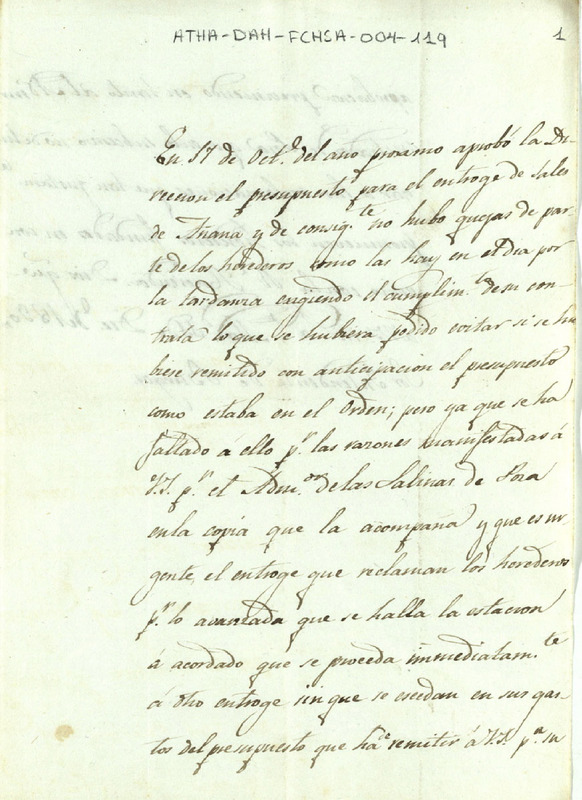 ATHA-DAH-FCHSA-004-119
1
En 17 de Oct.e del ano proximo aprobó la Di-
reccion el presupuesto para el entroge de sales
de Añana y de consig.te no hubo quejas de par-
te de los herederos como las hay en el dia por
la tardanza exigiendo el cumplim.to de su con-
trata lo que se hubiera podido evitar si se hu
biese remitido con anticipacion el presupuesto
como estaba en el orden; pero ya que se ha
faltado á ello p.r las razones manifestadas á
V.S. p.r el Adm.or de las Salinas de Poza
en la copia que la acompaña y que es ur-
gente, el entroge que reclaman los herederos
p.r lo avanzada que se halla la estacion
á acordado que se proceda immediatam.te
á dho entroge sin que se escedan en sus gas-
tos del presupuesto que há de remitir á V.S. p.a su